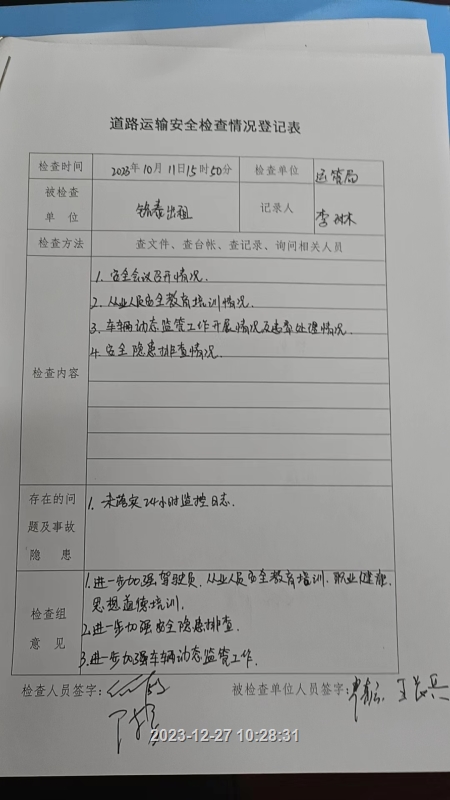 道路运输安全检查情况登记表
检查时间 2023年10月11日15时50分 检查单位 运管局
被检查单位 锦泰出租 记录人 李林
检查方法 查文件、查台帐、查记录、询问相关人员
检查内容
1. 安全会议召开情况.
2. 从业人员安全教育培训情况.
3. 车辆动态监管工作开展情况及违章处理情况.
4. 安全隐患排查情况.
存在的问题及事故隐患
1. 未落实24小时监控日志.
检查组意见
1.进一步加强驾驶员、从业人员安全教育培训、职业健康、
思想道德培训.
2.进一步加强安全隐患排查.
3.进一步加强车辆动态监管工作.
检查人员签字: 被检查单位人员签字:
2023-12-27 10:28:31